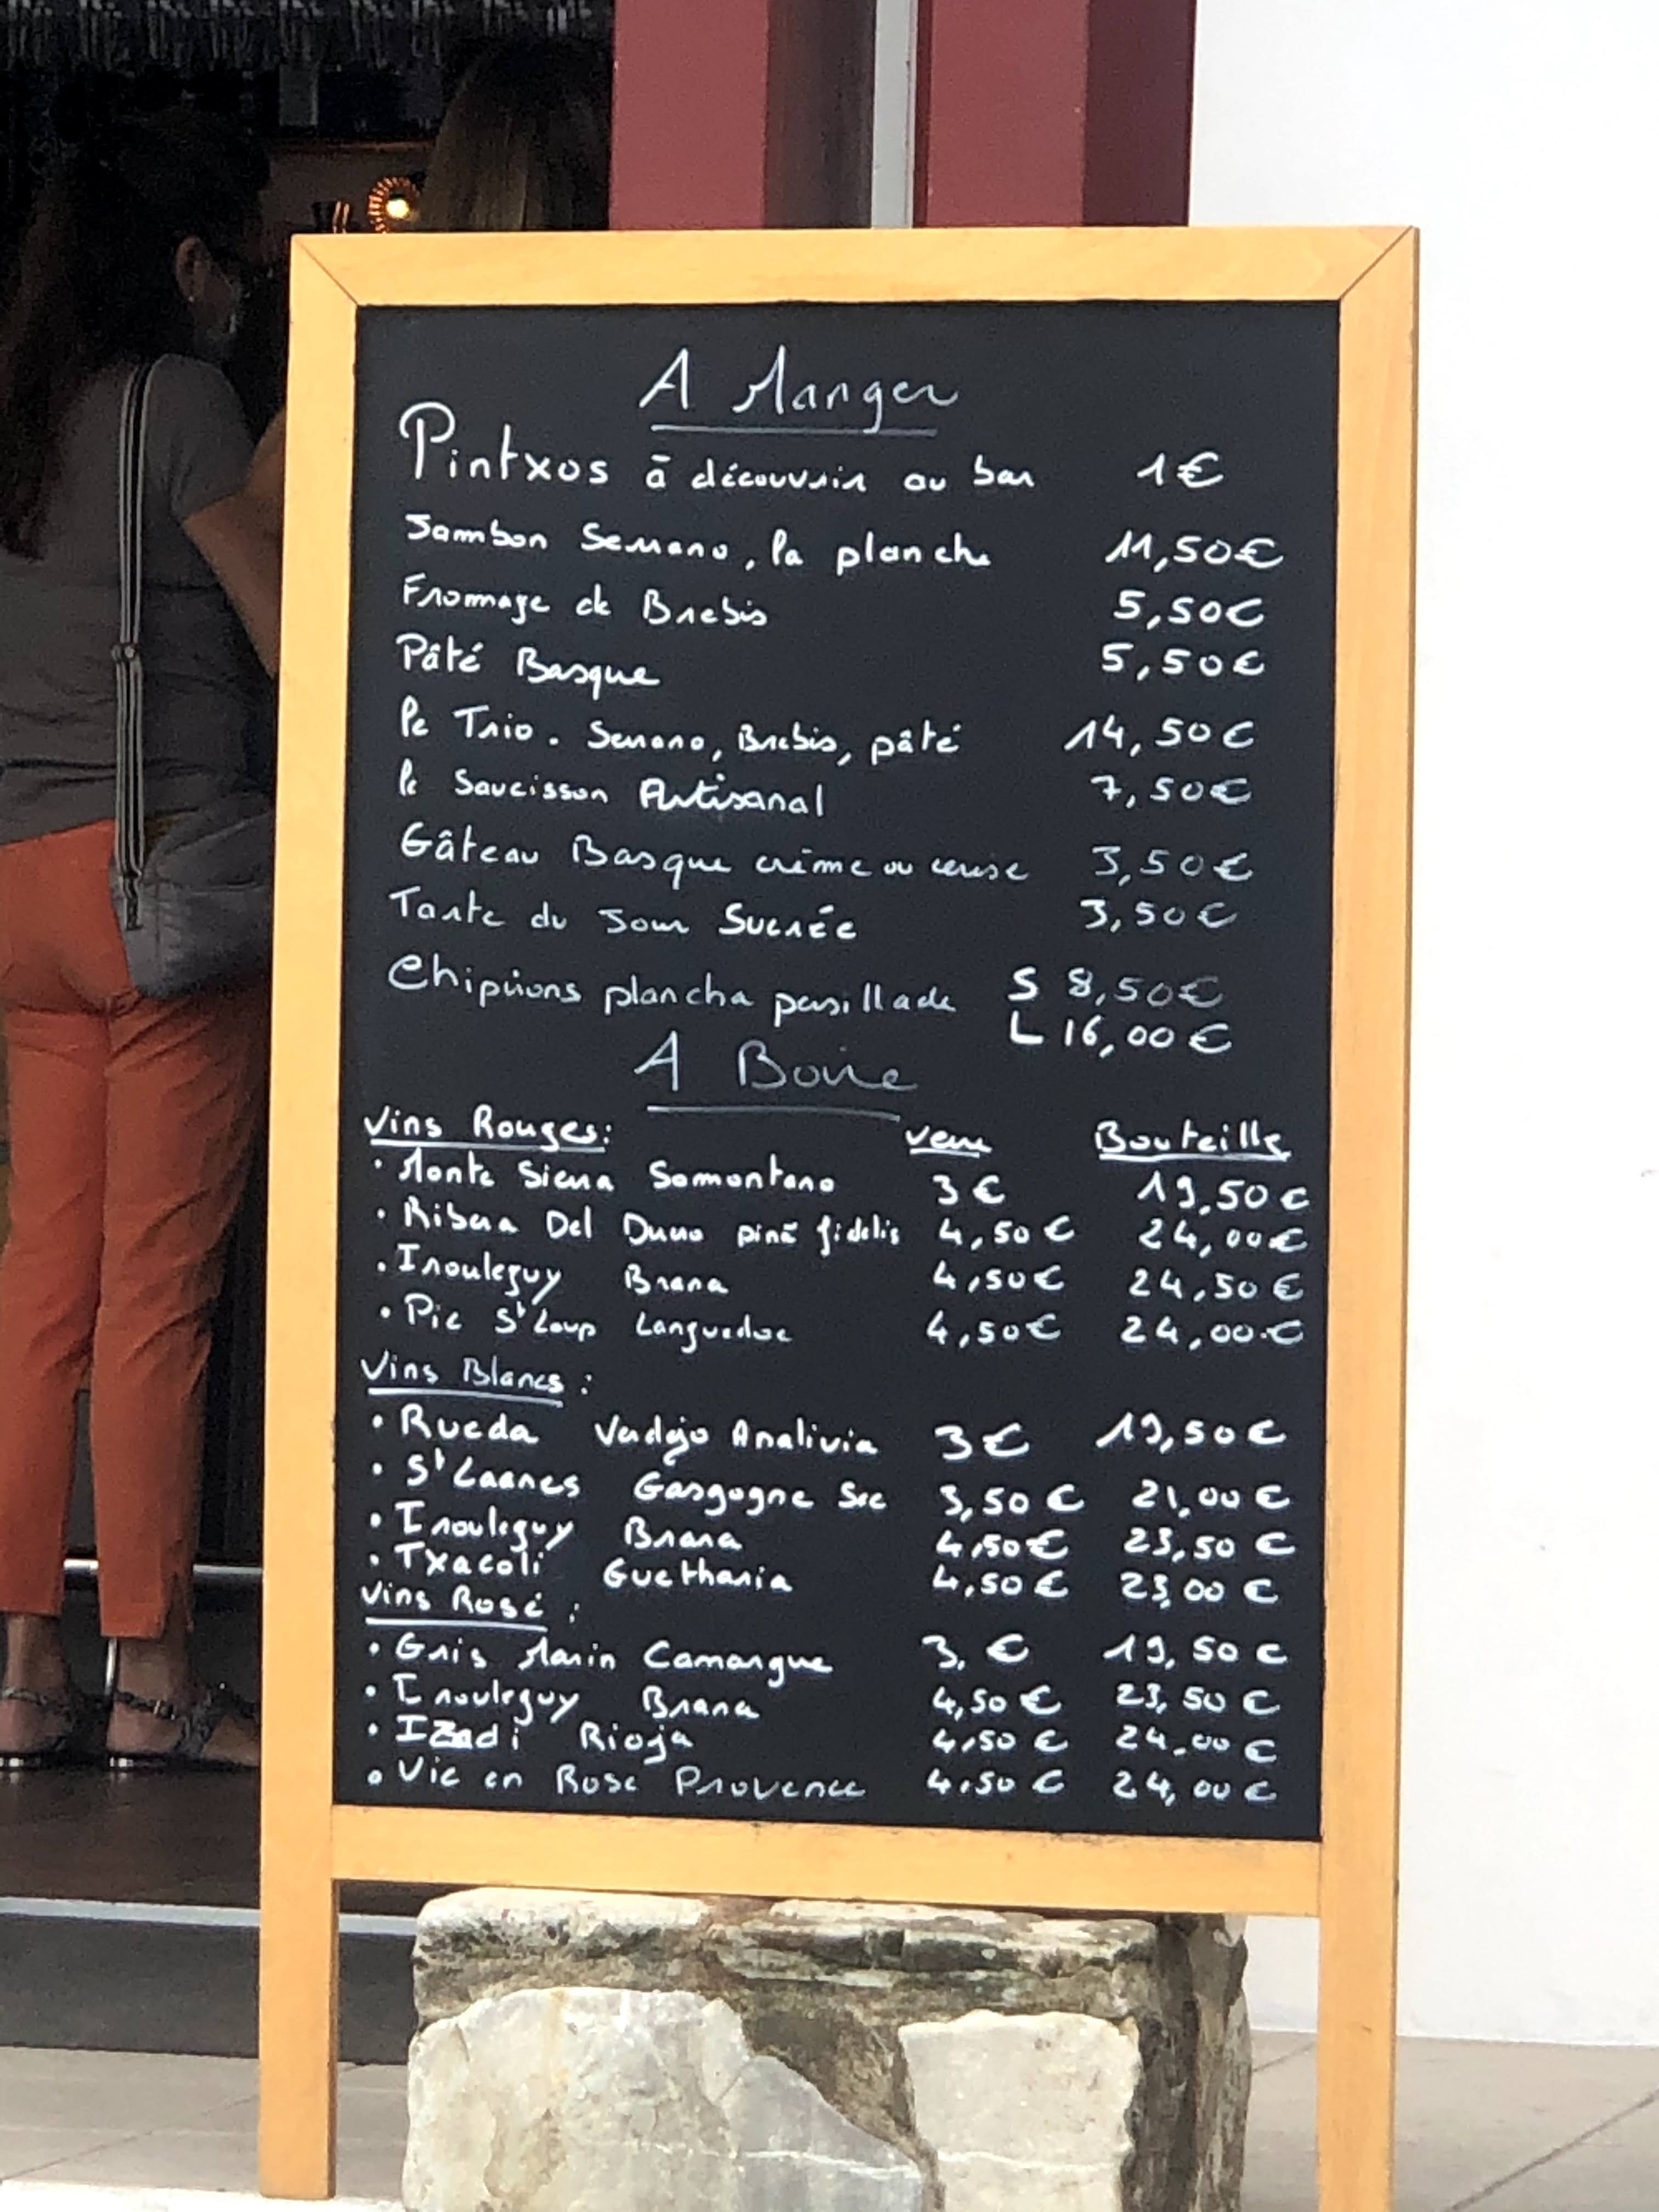 A Manger
Pintxos à découvrir au bar 1€
Jambon Serrano, la planche 11,50€
Fromage de Brebis 5,50€
Pâté Basque 5,50€
le Trio. Serrano, Brebis, pâté 14,50€
le Saucisson Artisanal 7,50€
Gâteau Basque crème ou cerise 3,50€
Tarte du Jour Sucrée 3,50€
Chipirons plancha persillade S 8,50€
L 16,00€
A Boire
Vins Rouges: verre Bouteille
• Monte Sierra Somontano 3€ 19,50€
• Ribera Del Duero pina fidelis 4,50€ 24,00€
• Irouleguy Brana 4,50€ 24,50€
• Pic St Loup Languedoc 4,50€ 24,00€
Vins Blancs :
• Rueda Verdejo Analivia 3€ 19,50€
• St Lannes Gasgogne Sec 3,50€ 21,00€
• Irouleguy Brana 4,50€ 23,50€
• Txacoli Guethania 4,50€ 23,00€
Vins Rosé :
• Gris Marin Camargue 3,€ 19,50€
• Irouleguy Brana 4,50€ 23,50€
• Izadi Rioja 4,50€ 24,00€
• Vie en Rose Provence 4,50€ 24,00€